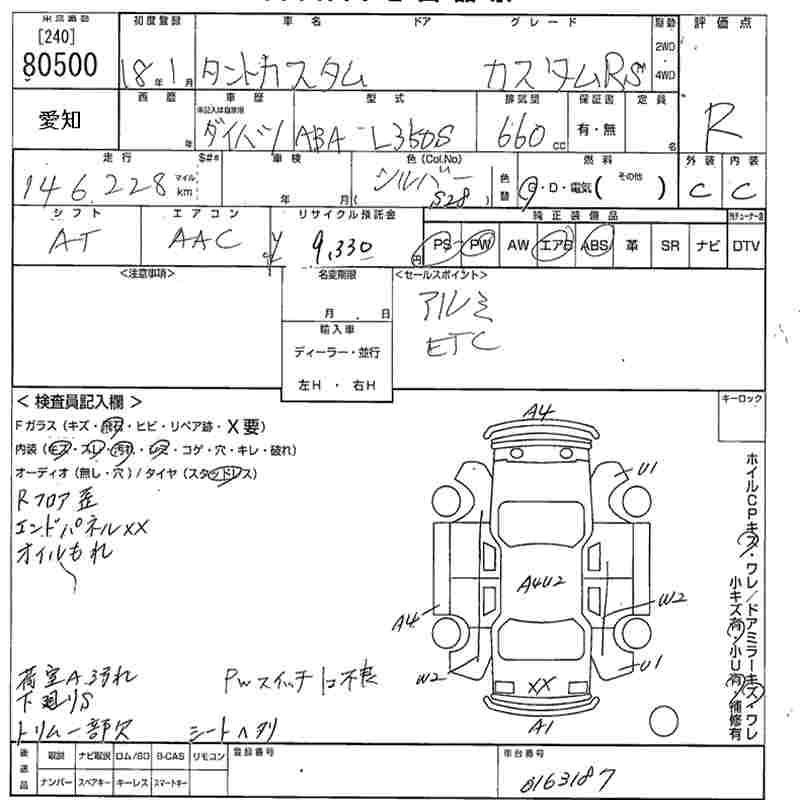 [240]
80500
初度登録
車名
ドア
グレード
駆動
評価点
18年1月
タントカスタム
カスタムRS
2WD
4WD
愛知
西暦
車歴
型式
排気量
保証書
定員
R
年
未記入は自家用
ダイハツ
ABA-L350S
660cc
有・無
名
走行
車検
色(Col.No)
色替
燃料
外装
内装
146,228
マイル
km
年
月
シルバー
(S28)
G・D・電気(その他)
C
C
シフト
エアコン
リサイクル預託金
純正装備品
AT
AAC
¥9,330円
PS
PW
AW
エアB
ABS
革
SR
ナビ
DTV
<注意事項>
名変期限
<セールスポイント>
月
日
アルミ
ETC
輸入車
ディーラー・並行
左H・右H
<検査員記入欄>
キーロック
Fガラス(キズ・飛石・ヒビ・リペア跡・X要)
内装(キズ・スレ・汚れ・シミ・コゲ・穴・キレ・破れ)
オーディオ(無し・穴)/タイヤ(スタッドレス)
Rフロア歪
エンドパネルXX
オイルもれ
A4
U1
A4U2
A4
W2
W2
U1
XX
A1
ホイルCPキズ・ワレ/ドアミラーキズ・ワレ
小キズ有/小U有・補修有
荷室A.汚れ
下廻りS
トリム一部欠
PWスイッチ不良
シートヘタリ
後送品
取説
ナビ取説
ロム/SD
B-CAS
リモコン
登録番号
車台番号
ナンバー
スペアキー
キーレス
スマートキー
0163187